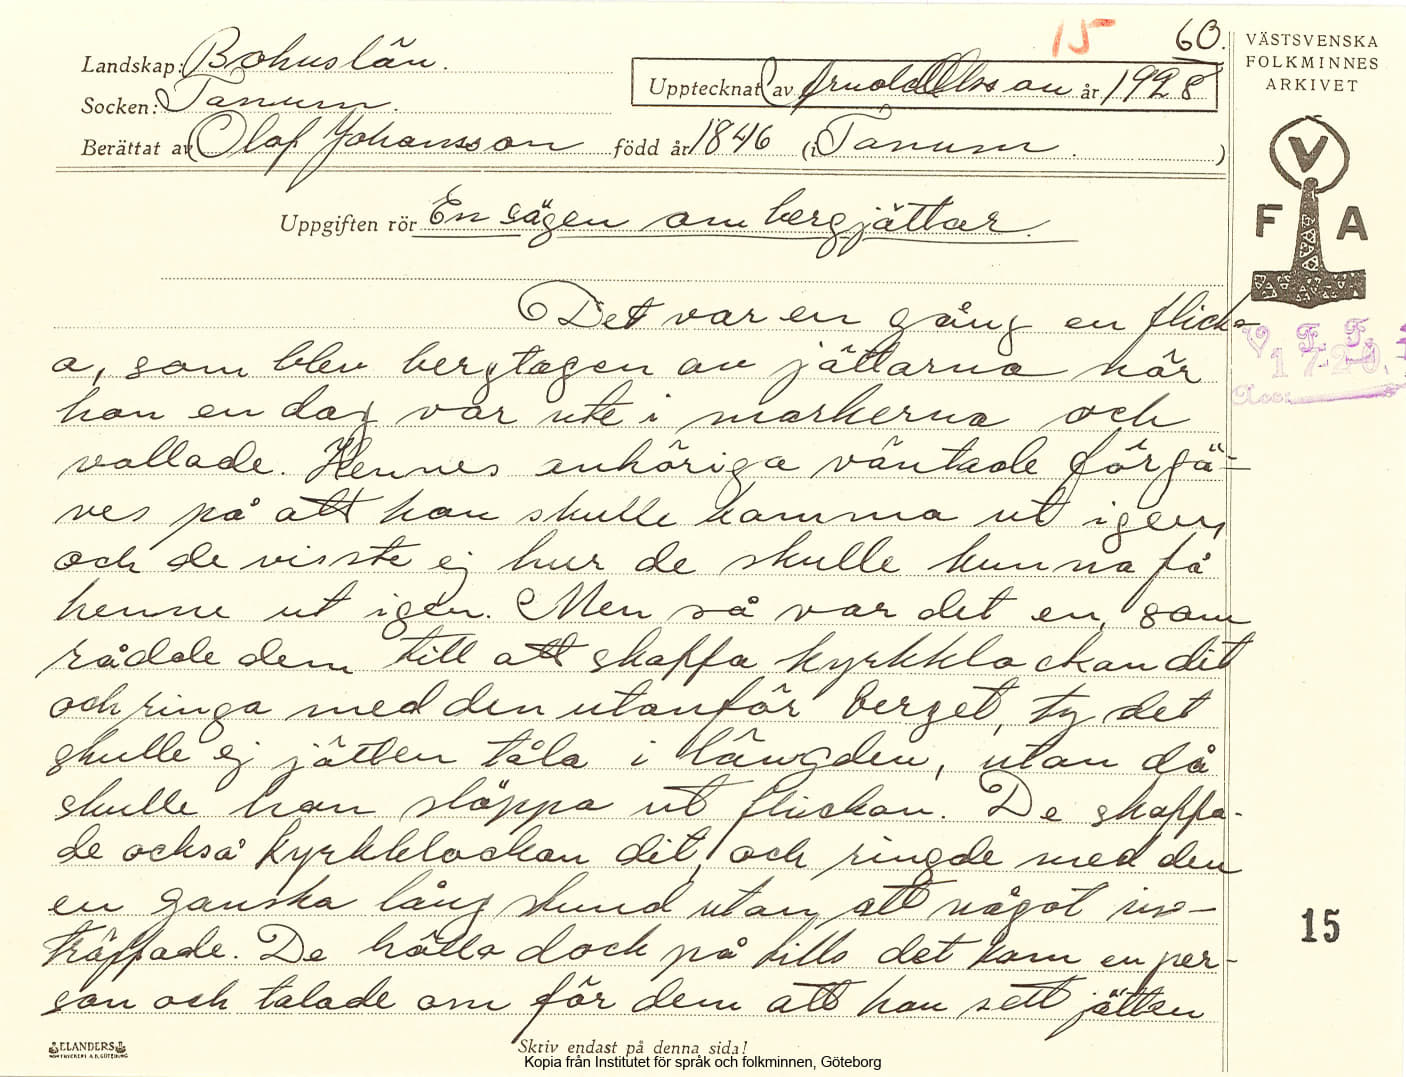 15
60.
Landskap: Bohuslän.
Socken: Tanum.
Upptecknat av Arnold Olsson år 1928
Berättat av Olof Johansson född år 1846 (i Tanum. )
VÄSTSVENSKA
FOLKMINNES
ARKIVET
V
F A
Uppgiften rör En sägen om bergjättar.
Det var en gång en flick-
a, som blev bergtagen av jättarna när
hon en dag var ute i markerna och
vallade. Hennes anhöriga väntade förgä-
ves på att hon skulle komma ut igen,
och de visste ej hur de skulle kunna få
henne ut igen. Men så var det en, som
rådde dem till att skaffa kyrkklockan dit
och ringa med den utanför berget, ty det
skulle ej jätten tåla i längden, utan då
skulle han släppa ut flickan. De skaffa-
de också kyrkklockan dit, och ringde med den
en ganska lång stund utan att något in-
träffade. De hölls dock på tills det kom en per-
son och talade om för dem att han sett jätten
V. F. F.
1720
Acc:
15
ELANDERS
Skriv endast på denna sida!
Kopia från Institutet för språk och folkminnen, Göteborg